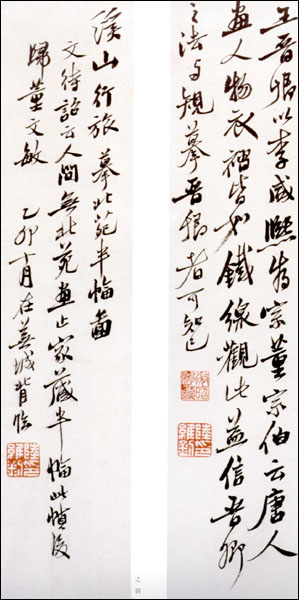 王晉卿以李咸熙為宗董宗伯云唐人
畫人物衣褶皆如鐵線觀此益信晉卿
之法与規摹晉卿者可知已
溪山行旅 摹北苑半幅圖
文待詔云人間無北苑畫止家藏半幅此幀後
歸董文敏 乙卯十月在蕪城背臨
之四